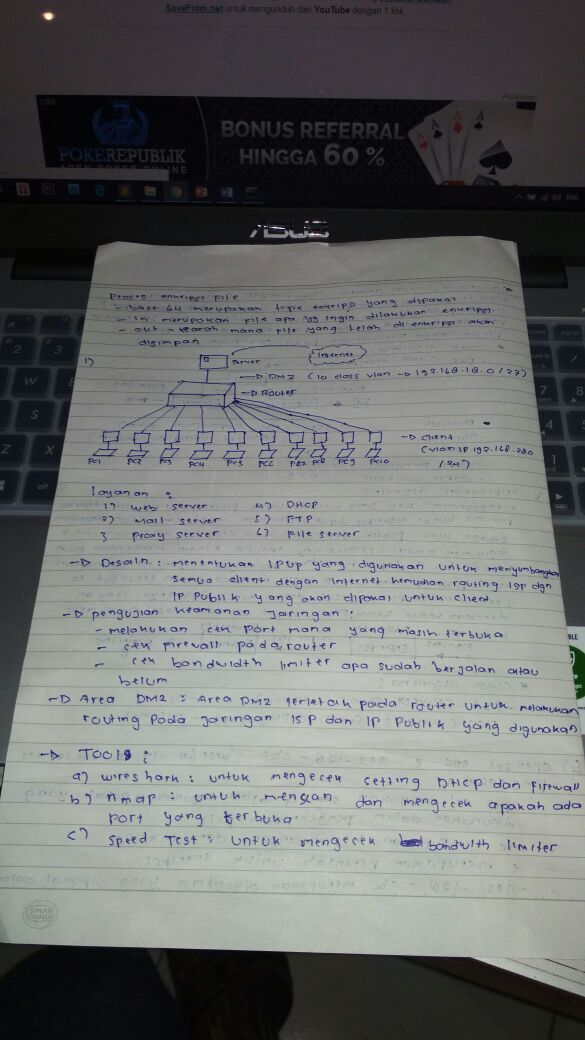 SaveFrom.net untuk mengunduh dari YouTube dengan 1 klik
POKEREPUBLIK
AGEN POKER ONLINE
BONUS REFERRAL
HINGGA 60 %
A
A
A
A
ENG
ASUS
Proses enkripsi file
- base 64 merupakan type enkripsi yang dipakai
- in merupakan file apa yg ingin dilakukan enkripsi
- out - kearah mana file yang telah di enkripsi akan
disimpan
1)
Server
Internet
DMZ
Router
client
PC1 PC2 PC3 PC4 PC5 PC6 PC7 PC8 PC9 PC10
Layanan :
1) web server 4) DHCP
2) Mail server 5) FTP
3 proxy server 6) File server
-> Desain : menentukan yang digunakan untuk
semua client dengan internet kemudian routing ISP dgn
IP Publik yang akan dipakai untuk client
-> pengujian keamanan jaringan :
- melakukan cek port mana yang masih terbuka
- cek firewall pada router
- cek bandwidth limiter apa sudah berjalan atau
belum
-> Area DMZ : Area DMZ terletak pada router untuk melakukan
routing pada jaringan ISP dan IP Publik yang digunakan
-> TOOLS :
a) wireshark : untuk mengecek setting DHCP dan firewall
b) nmap : untuk menscan dan mengecek apakah ada
port yang terbuka
c) Speed Test : untuk mengecek bandwith limiter
SINAR
DUNIA